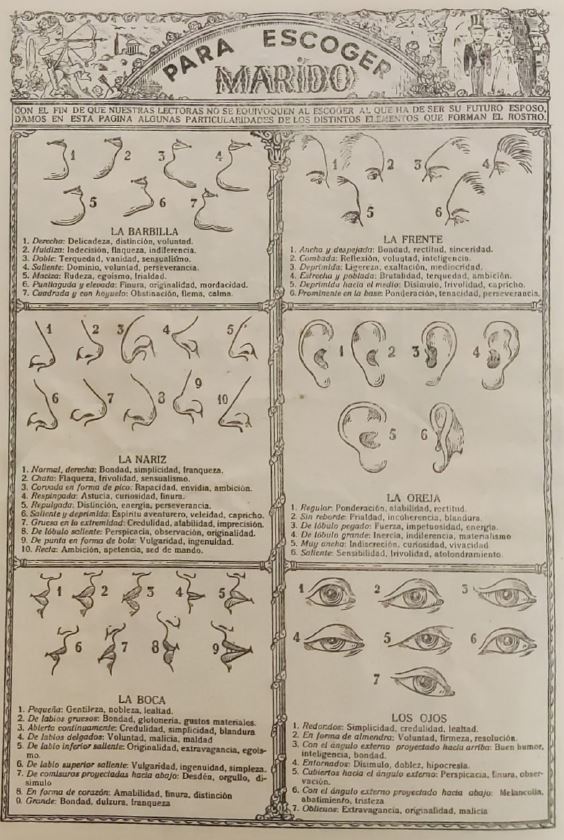 PARA ESCOGER
MARIDO
CON EL FIN DE QUE NUESTRAS LECTORAS NO SE EQUIVOQUEN AL ESCOGER AL QUE HA DE SER SU FUTURO ESPOSO,
DAMOS EN ESTA PAGINA ALGUNAS PARTICULARIDADES DE LOS DISTINTOS ELEMENTOS QUE FORMAN EL ROSTRO.
1 2 3 4
5 6 7
LA BARBILLA
1. Derecha: Delicadeza, distinción, voluntad.
2. Huidiza: Indecisión, flaqueza, indiferencia.
3. Doble: Terquedad, vanidad, sensualismo.
4. Saliente: Dominio, voluntad, perseverancia.
5. Maciza: Rudeza, egoísmo, frialdad.
6. Puntiaguda y elevada: Finura, originalidad, mordacidad.
7. Cuadrada y con hoyuelo: Obstinación, flema, calma.
1 2 3 4
5 6
LA FRENTE
1. Ancha y despejada: Bondad, rectitud, sinceridad.
2. Combada: Reflexión, voluntad, inteligencia.
3. Deprimida: Ligereza, exaltación, mediocridad.
4. Estrecha y poblada: Brutalidad, terquedad, ambición.
5. Deprimida hacia el medio: Disimulo, frivolidad, capricho.
6. Prominente en la base: Ponderación, tenacidad, perseverancia.
1 2 3 4 5
6 7 8 9 10
LA NARIZ
1. Normal, derecha: Bondad, simplicidad, franqueza.
2. Chata: Flaqueza, frivolidad, sensualismo.
3. Corvada en forma de pico: Rapacidad, envidia, ambición.
4. Respingada: Astucia, curiosidad, finura.
5. Repulgada: Distinción, energía, perseverancia.
6. Saliente y deprimida: Espíritu aventurero, veleidad, capricho.
7. Gruesa en la extremidad: Credulidad, afabilidad, imprecisión.
8. De lóbulo saliente: Perspicacia, observación, originalidad.
9. De punta en forma de bola: Vulgaridad, ingenuidad.
10. Recta: Ambición, apetencia, sed de mando.
1 2 3 4
5 6
LA OREJA
1. Regular: Ponderación, afabilidad, rectitud.
2. Sin reborde: Frialdad, incoherencia, blandura.
3. De lóbulo pegado: Fuerza, impetuosidad, energía.
4. De lóbulo grande: Inercia, indiferencia, materialismo
5. Muy ancha: Indiscreción, curiosidad, vivacidad
6. Saliente: Sensibilidad, frivolidad, atolondramiento
1 2 3 4 5
6 7 8 9
LA BOCA
1. Pequeña: Gentileza, nobleza, lealtad.
2. De labios gruesos: Bondad, glotonería, gustos materiales.
3. Abierta continuamente: Credulidad, simplicidad, blandura
4. De labios delgados: Voluntad, malicia, maldad
5. De labio inferior saliente: Originalidad, extravagancia, egoís-
mo.
6. De labio superior saliente: Vulgaridad, ingenuidad, simpleza.
7. De comisuras proyectadas hacia abajo: Desdén, orgullo, di-
simulo
8. En forma de corazón: Amabilidad, finura, distinción
9. Grande: Bondad, dulzura, franqueza
1 2 3
4 5 6
7
LOS OJOS
1. Redondos: Simplicidad, credulidad, lealtad.
2. En forma de almendra: Voluntad, firmeza, resolución.
3. Con el ángulo externo proyectado hacia arriba: Buen humor,
inteligencia, bondad.
4. Entornados: Disimulo, doblez, hipocresía.
5. Cubiertos hacia el ángulo externo: Perspicacia, finura, obser-
vación.
6. Con el ángulo externo proyectado hacia abajo: Melancolía,
abatimiento, tristeza
7. Oblicuos: Extravagancia, originalidad, malicia